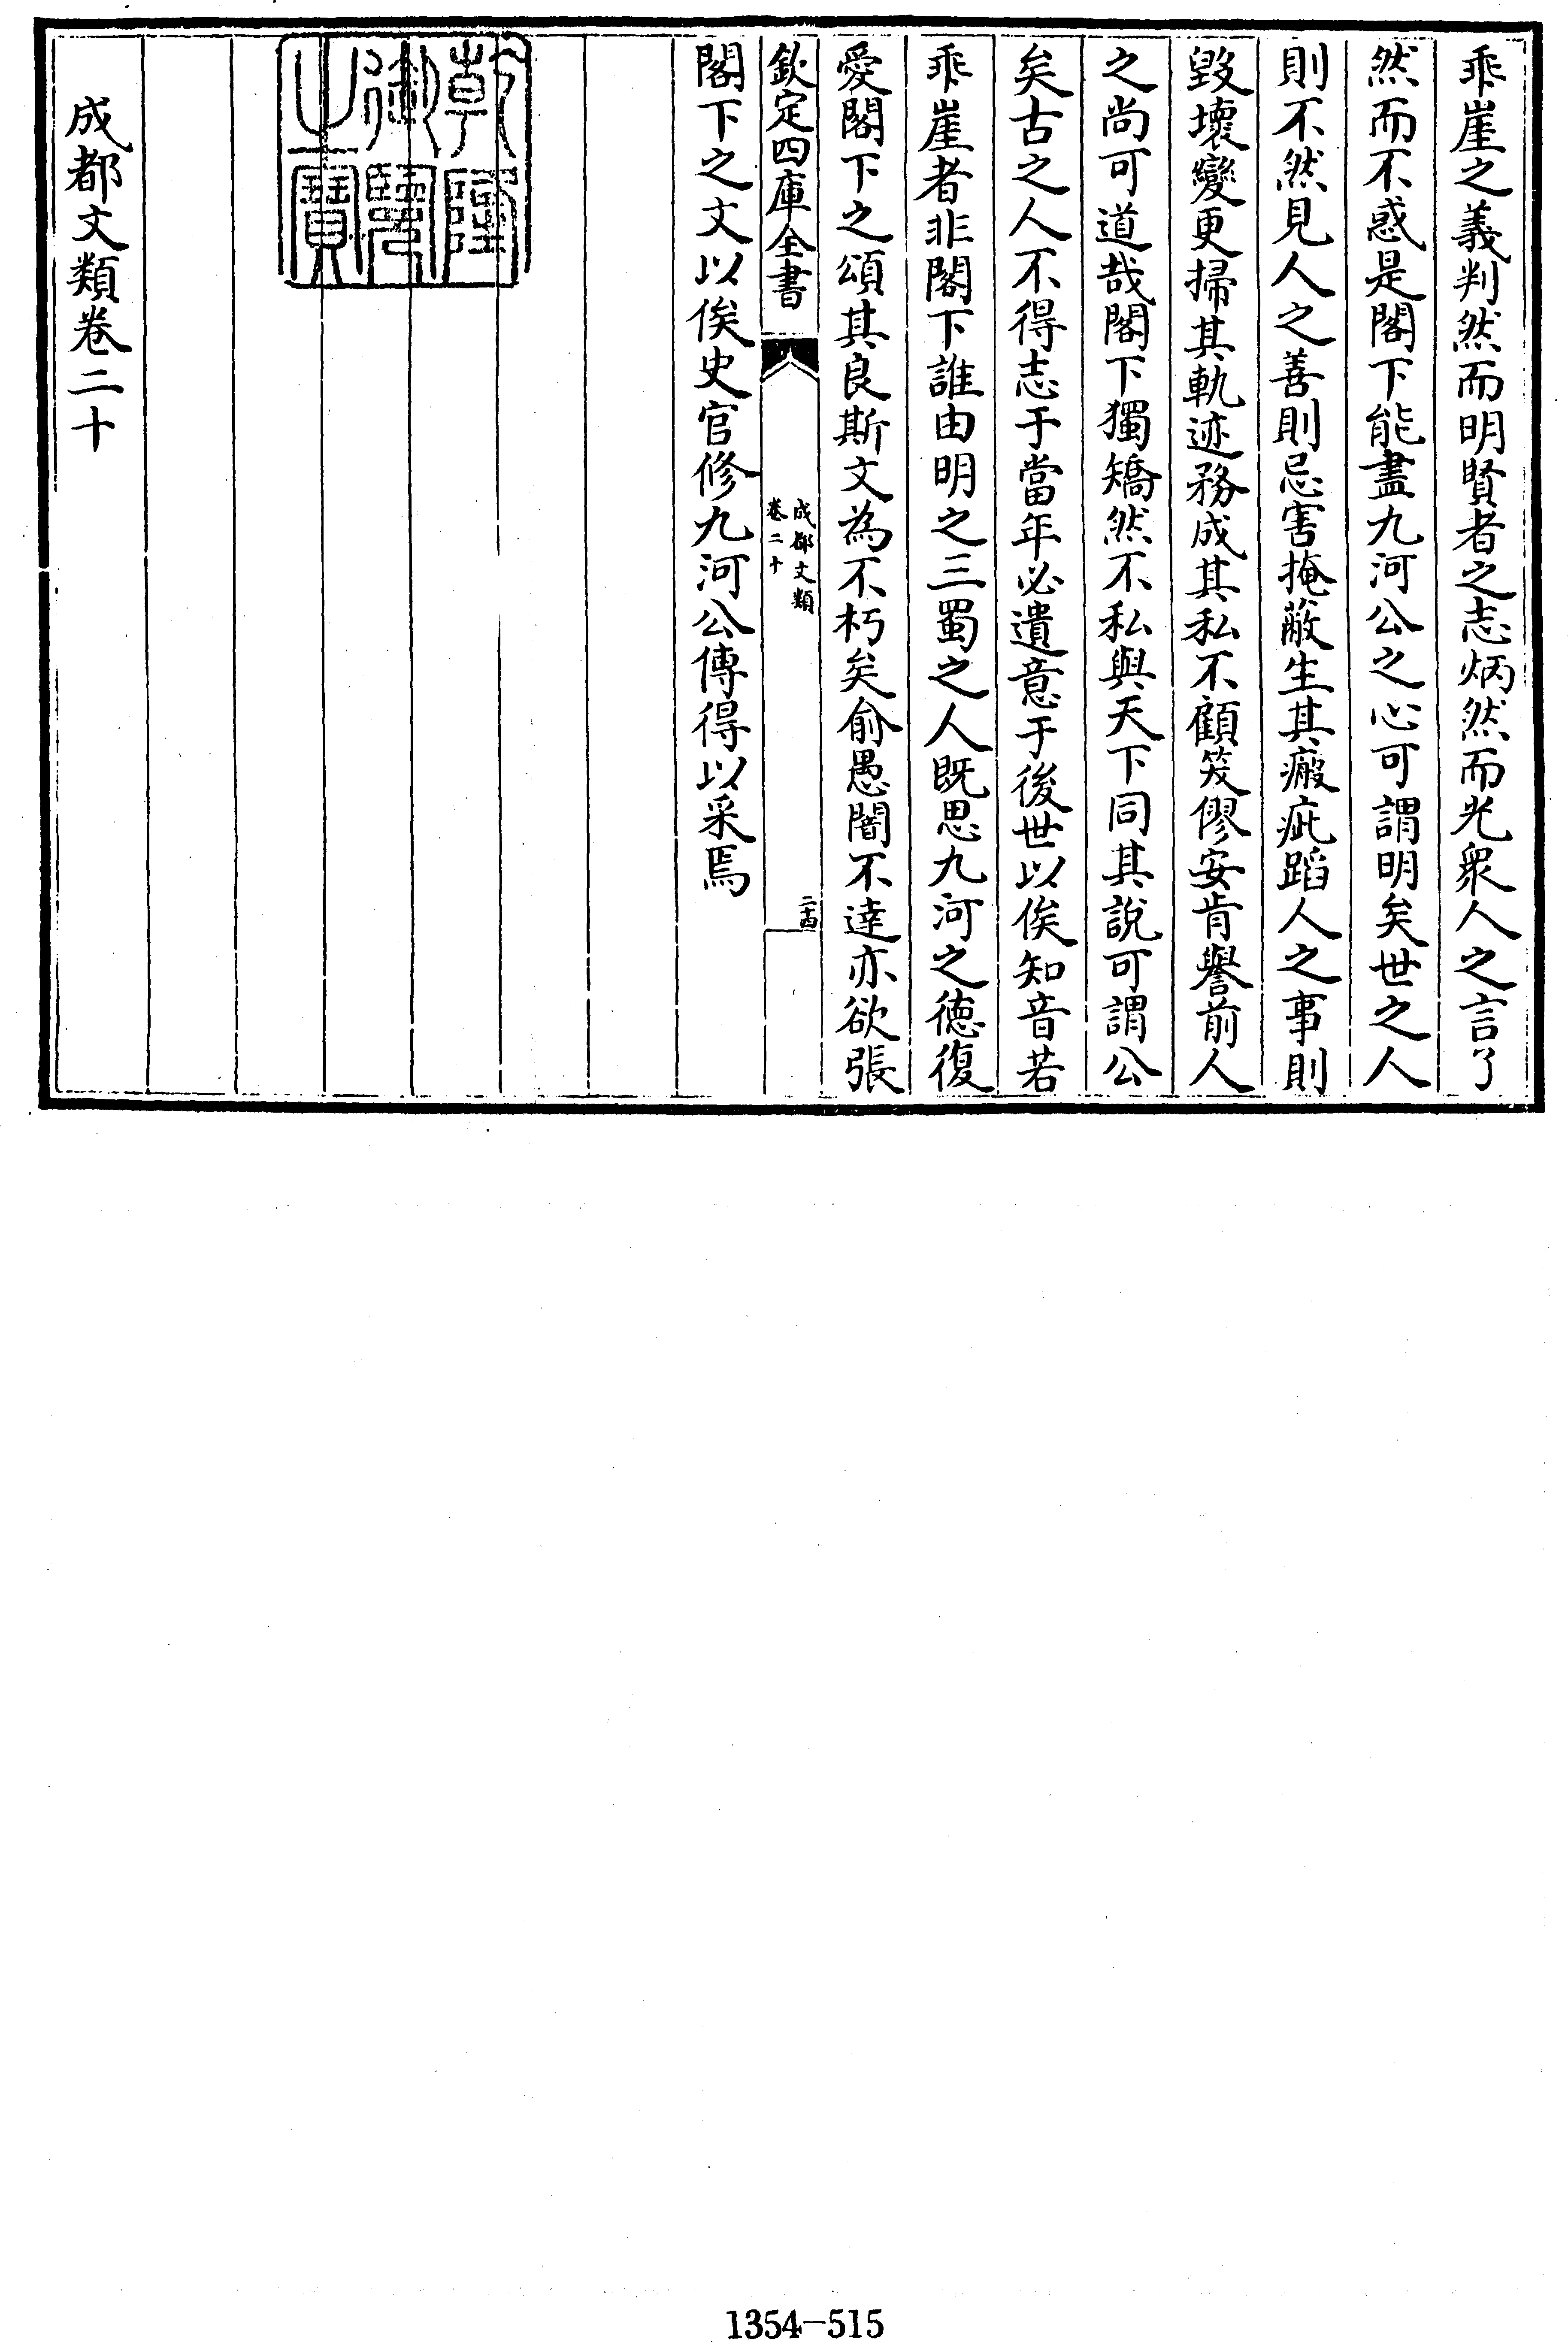 乖崖之義判然而明賢者之志炳然而光衆人之言了
然而不惑是閣下能盡九河公之心可謂明矣世之人
則不然見人之善則忌害掩蔽生其瘢疵蹈人之事則
毀壞變更掃其軌迹務成其私不顧笑僇安肯譽前人
之尚可道哉閣下獨矯然不私與天下同其說可謂公
矣古之人不得志于當年必遺意于後世以俟知音若
乖崖者非閣下誰由明之三蜀之人既思九河之德復
愛閣下之頌其良斯文為不朽矣俞愚闇不達亦欲張
欽定四庫全書
成都文類
卷二十
二十四
閣下之文以俟史官修九河公傳得以采焉
乾隆
御覽
之寶
成都文類卷二十
1354-515